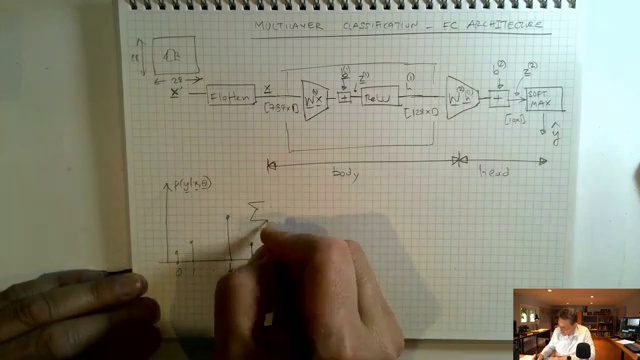 MULTILAYER CLASSIFICATION _ FC ARCHITECTURE
28
28
x Flatten x [784x1] W⁽¹⁾x + b⁽¹⁾ z⁽¹⁾ ReLU h⁽¹⁾ [128x1] W⁽²⁾h⁽¹⁾ + b⁽²⁾ z⁽²⁾ [10x1] SOFT MAX
ŷ
body head
p(y|x,θ)
Σ
0 1